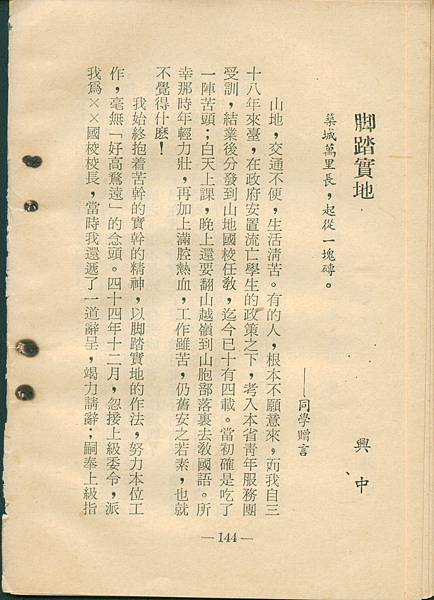 脚踏實地
興中
築城萬里長，起從一塊磚。
——同學贈言
山地，交通不便，生活淸苦。有的人，根本不願意來，而我自三
十八年來臺，在政府安置流亡學生的政策之下，考入本省靑年服務團
受訓，結業後分發到山地國校任敎，迄今已十有四載。當初確是吃了
一陣苦頭；白天上課，晚上還要翻山越嶺到山胞部落裏去敎國語。所
幸那時年輕力壯，再加上滿腔熱血，工作雖苦，仍舊安之若素，也就
不覺得什麽！
我始終抱着苦幹的實幹的精神，以脚踏實地的作法，努力本位工
作，毫無「好高騖遠」的念頭。四十四年十二月，忽接上級委令，派
我爲××國校校長，當時我還遞了一道辭呈，竭力請辭；嗣奉上級指
—144—